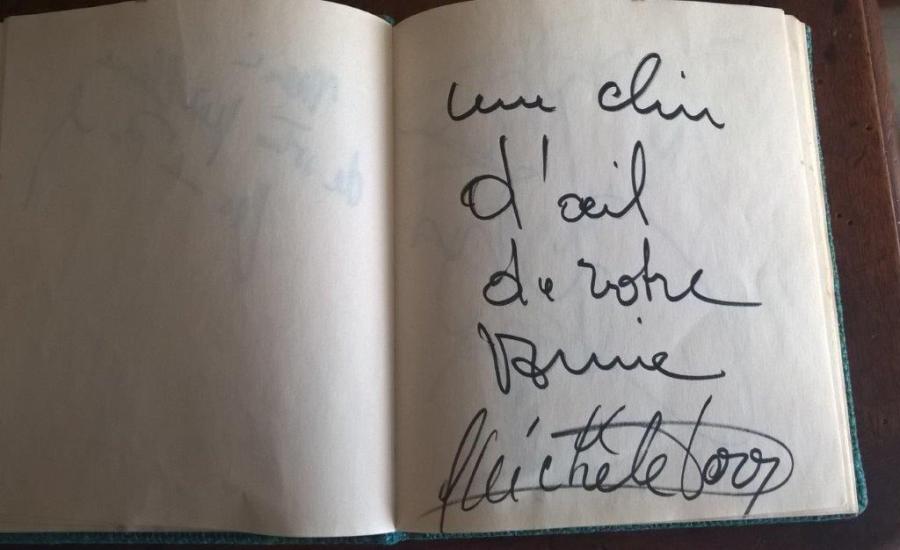 une clin
d'œil
de votre
Amie
Michèle Torr